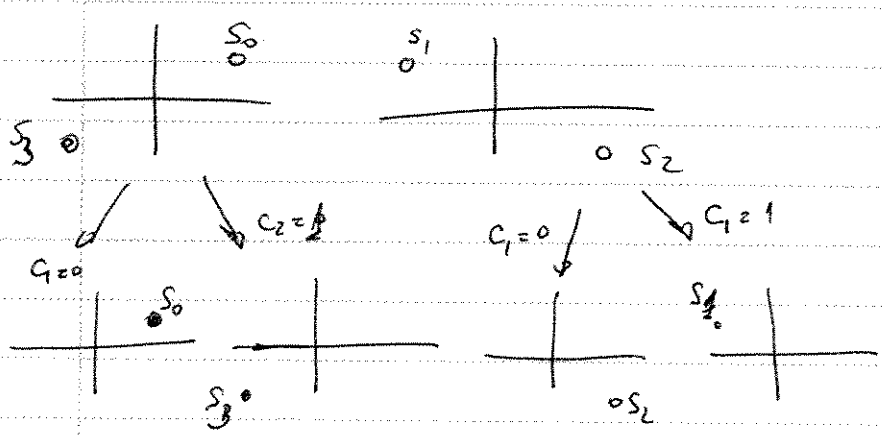 S0 S1
S3 S2
C1=0 C2=1 C1=0 C1=1
S0 S1
S3 S2